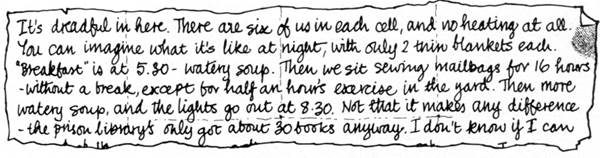 It's dreadful in here. There are six of us in each cell, and no heating at all.
You can imagine what it's like at night, with only 2 thin blankets each.
"Breakfast" is at 5.30 - watery soup. Then we sit sewing mailbags for 16 hours
- without a break, except for half an hour's exercise in the yard. Then more
watery soup, and the lights go out at 8.30. Not that it makes any difference
- the prison library's only got about 30 books anyway. I don't know if I can